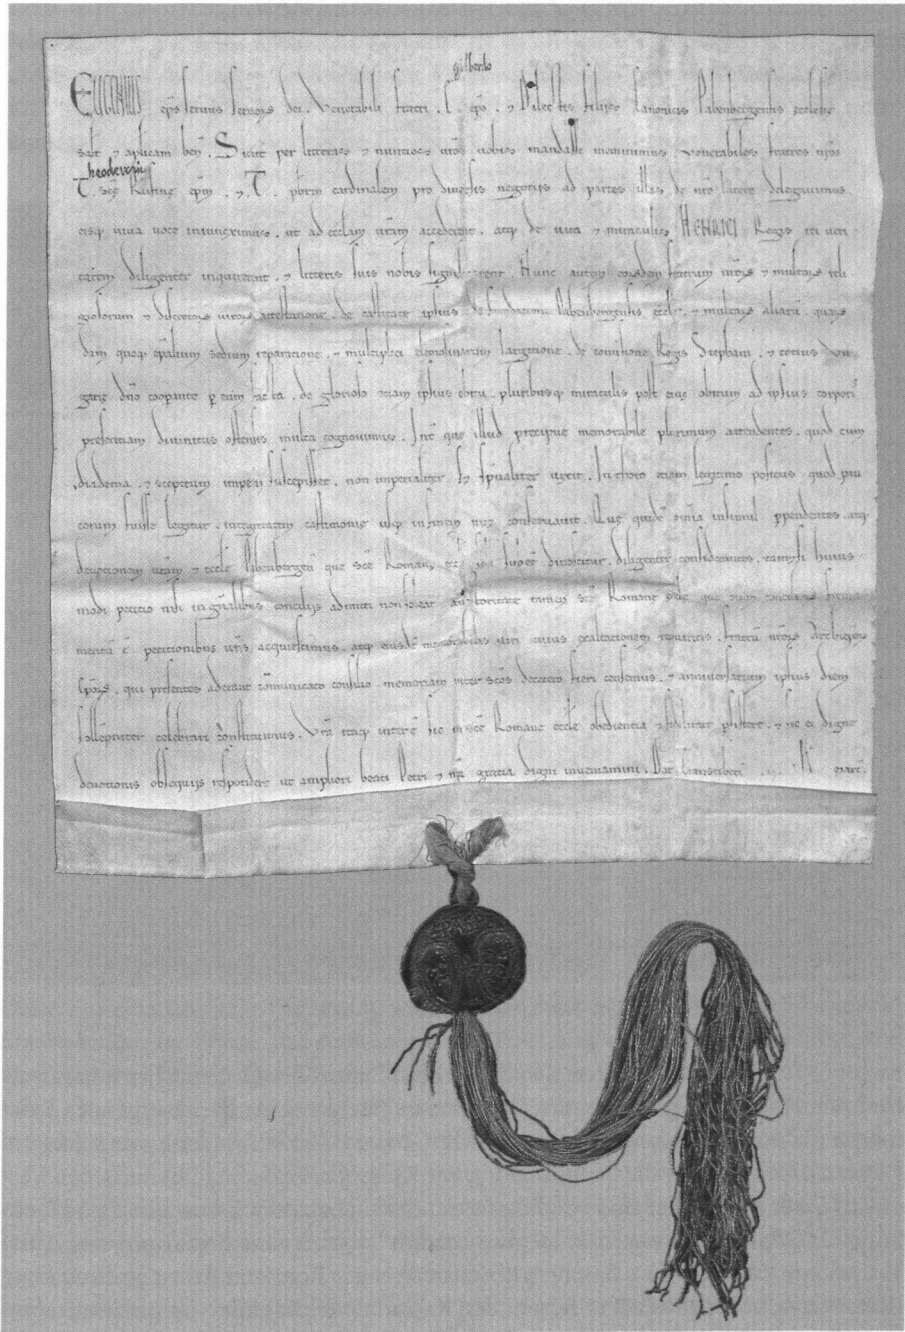 gilberto
EUGENIUS eps seruus seruoꝝ dei. Venerabili fratri. epo. ⁊ Dilectis filijs Canonicis Babenbergensis ecclesie
salt ⁊ aplicam ben. Sicut per litteras ⁊ nuntios uros uobis mandasse meminimus. uenerabiles fratres nros
theodeuuinu
T. sce Rufine epm. ⁊. T. pbrm cardinalem pro diuersis negotiis ad partes illas de nro latere delegauimus.
eisq uiua uoce iniunximus. ut ad ecclam uram accederent. atq de uita ⁊ miraculis HENRICI Regis rei ueri
tatem diligenter inquirerent. ⁊ litteris suis nobis significarent. Nunc autem eorundem fratrum nroꝝ ⁊ multoꝝ reli
giosorum ⁊ discretoꝝ uiroꝝ attestatione. de castitate ipsius de fundatione Babenbergensis eccle. ⁊ multaꝝ aliaru. quaꝝ
dam quoq epalium sedium reparatione. ⁊ multiplici elemosinarum largitione. de conuersione Regis Stephani. ⁊ totius Vn
garie dno cooperante p eum facta. de glorioso etiam ipsius obitu. pluribusq miraculis post eius obitum ad ipsius corporis
presentiam diuinitus ostensis multa cognouimus. Int que illud precipue memorabile plurimum attendentes. quod cum
diadema. ⁊ sceptrum imperii suscepisset. non imperialiter. sꝫ spualiter uixit. In thoro etiam legitimo positus. quod pau
corum fuisse legitur. integritatem castimonie usq in finem uite conseruauit. Que quide omia insimul ppendentes. atq
deuotionem uram ⁊ eccle Babenbergen que sce Romane eccle soli subesse dinoscitur. diligenter considerantes. tametsi huius
modi petitio nisi in gnalibus conciliis admitti non soleat auctoritate tamen sce Romane eccle que omium conciliorum firma
mentu e. petitionibus uris acquiescimus. atq eiusde memorabilis uiri cuius exaltationem requiritis. fratru nroꝝ Archiepoꝝ
Epoꝝ. qui presentes aderant comunicato consilio. memoriam inter scos de cetero fieri censemus. ⁊ anniuersarium ipsius diem
sollepniter celebrari constituimus. Vra itaq interit sic in sce Romane eccle obedientia ⁊ fidelitate persistere. ⁊ sic ei digne
deuotionis obsequiis respondere ut ampliori beati Petri ⁊ nra gratia digni inueniamini. Dat Transtiberi. K marc.